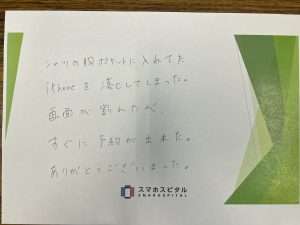 シャツの胸ポケットに入れてた
iPhoneを落としてしまった。
画面が割れたが、
すぐに予約が出来た。
ありがとうございました。
スマホスピタル
SMAHOSPITAL